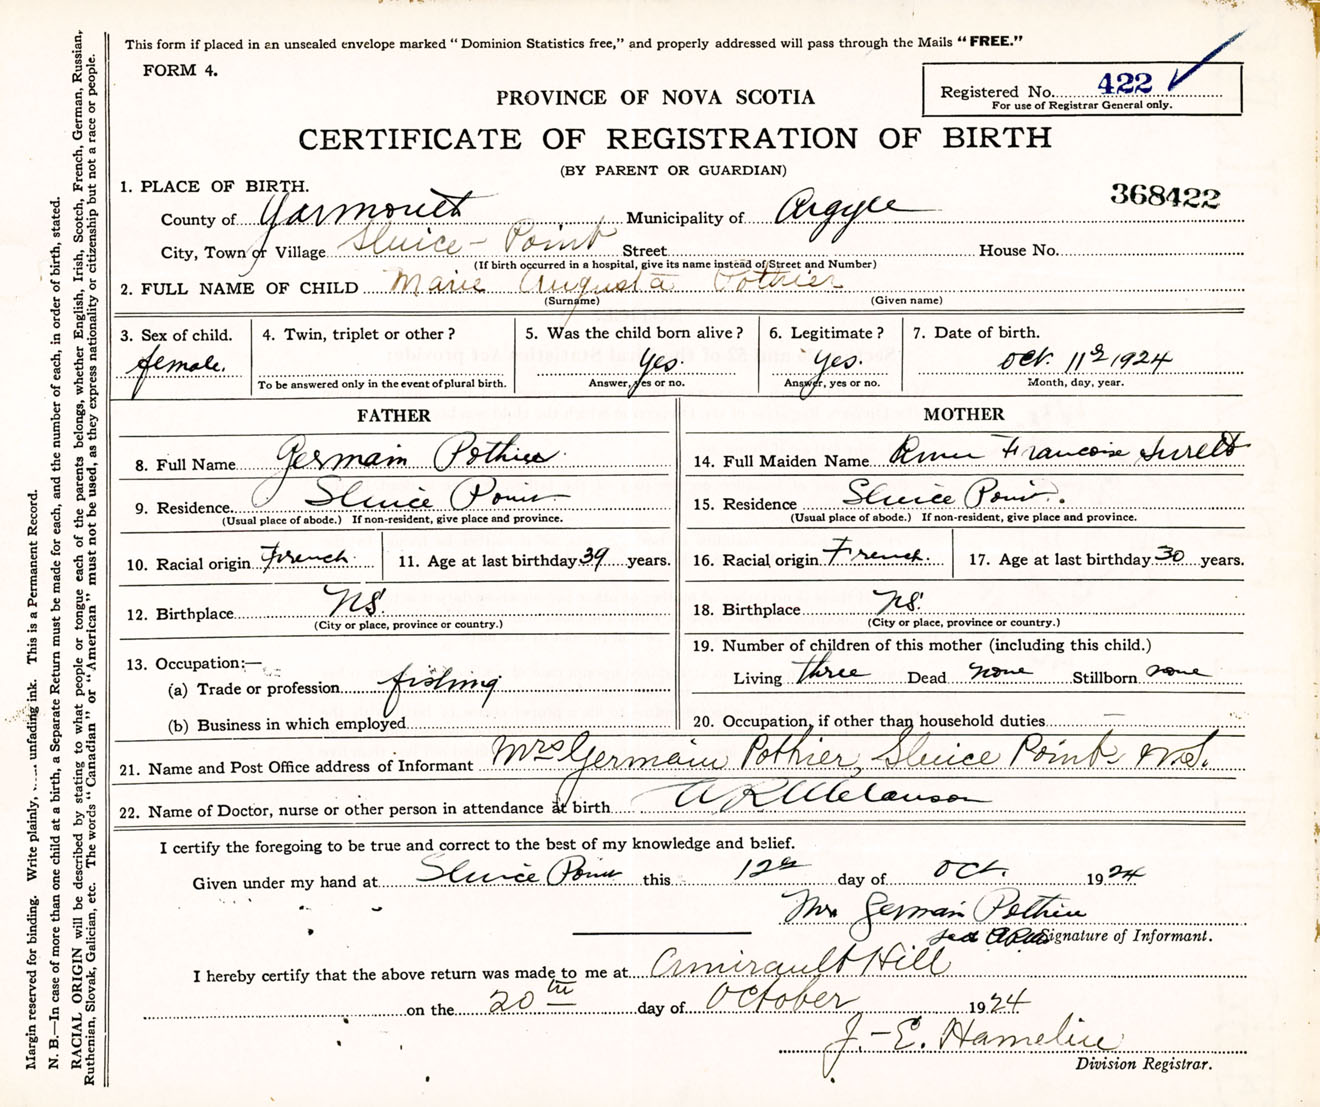 This form if placed in an unsealed envelope marked "Dominion Statistics free," and properly addressed will pass through the Mails "FREE."
FORM 4.
Registered No. 422
For use of Registrar General only.
PROVINCE OF NOVA SCOTIA
CERTIFICATE OF REGISTRATION OF BIRTH
(BY PARENT OR GUARDIAN)
368422
1. PLACE OF BIRTH.
County of Yarmouth Municipality of Argyle
City, Town or Village Sluice-Point Street House No.
(If birth occurred in a hospital, give its name instead of Street and Number)
2. FULL NAME OF CHILD Marie Augusta Pothier
(Surname) (Given name)
3. Sex of child. 4. Twin, triplet or other? 5. Was the child born alive? 6. Legitimate? 7. Date of birth.
female. Yes. Yes. Oct. 11th 1924
To be answered only in the event of plural birth. Answer, yes or no. Answer, yes or no. Month, day, year.
FATHER
8. Full Name Germain Pothier
9. Residence. Sluice Point
(Usual place of abode.) If non-resident, give place and province.
10. Racial origin French. 11. Age at last birthday 39 years.
12. Birthplace NS.
(City or place, province or country.)
13. Occupation:—
(a) Trade or profession fishing
(b) Business in which employed
MOTHER
14. Full Maiden Name Francoise Surette
15. Residence Sluice Point.
(Usual place of abode.) If non-resident, give place and province.
16. Racial origin French. 17. Age at last birthday 30 years.
18. Birthplace NS.
(City or place, province or country.)
19. Number of children of this mother (including this child.)
Living three Dead none Stillborn none
20. Occupation, if other than household duties —
21. Name and Post Office address of Informant Mrs Germain Pothier, Sluice Point N.S.
22. Name of Doctor, nurse or other person in attendance at birth A R Melanson
I certify the foregoing to be true and correct to the best of my knowledge and belief.
Given under my hand at Sluice Point this 12th day of Oct. 1924
Mrs Germain Pothier
Signature of Informant.
I hereby certify that the above return was made to me at Amirault Hill
on the 20th day of October 1924
J.-E. Hamelin
Division Registrar.
Margin reserved for binding. Write plainly, unfading ink. This is a Permanent Record.
N. B.—In case of more than one child at a birth, a Separate Return must be made for each, and the number of each, in order of birth, stated.
RACIAL ORIGIN will be described by stating to what people or tongue each of the parents belongs, whether English, Irish, Scotch, French, German, Russian,
Ruthenian, Slovak, Galician, etc. The words "Canadian" or "American" must not be used, as they express nationality or citizenship but not a race or people.